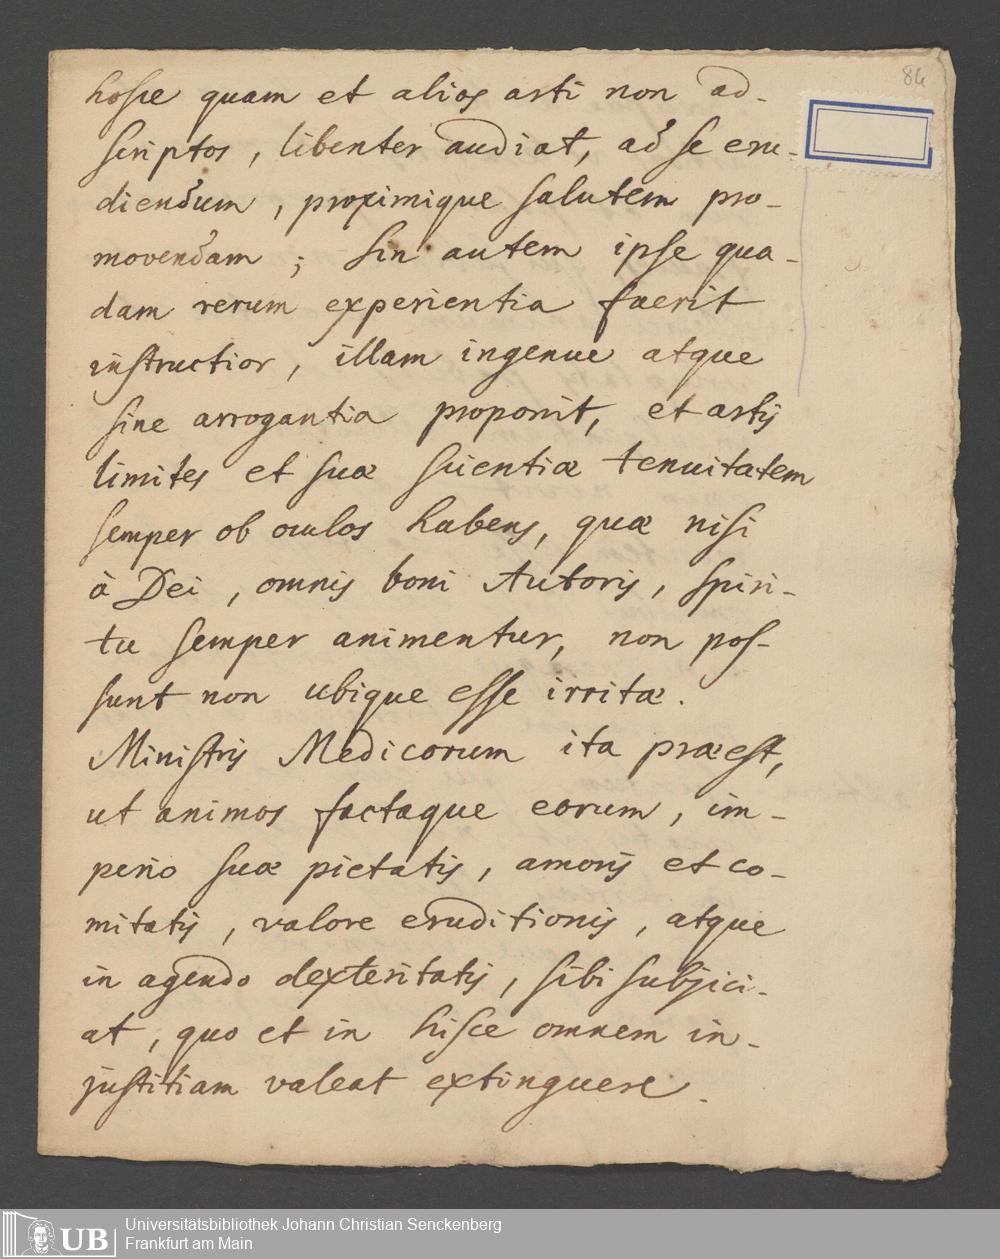 84
hosce quam et alios arti non ad-
scriptos, libenter audiat, ad se eru-
diendum, proximique salutem pro-
movendam; sin autem ipse qua-
dam rerum experientia fuerit
instructior, illam ingenue atque
sine arrogantia proponit, et artis
limites et suæ scientiæ tenuitatem
semper ob oculos habens, quæ nisi
à Dei, omnis boni Autoris, spiri-
tu semper animentur, non pos-
sunt non ubique esse irritæ.
Ministris Medicorum ita præest,
ut animos factaque eorum, im-
perio suæ pietatis, amoris et co-
mitatis, valore eruditionis, atque
in agendo dexteritatis, sibi subjici-
at, quo et in hisce omnem in-
justitiam valeat extinguere.
UB Universitätsbibliothek Johann Christian Senckenberg
Frankfurt am Main